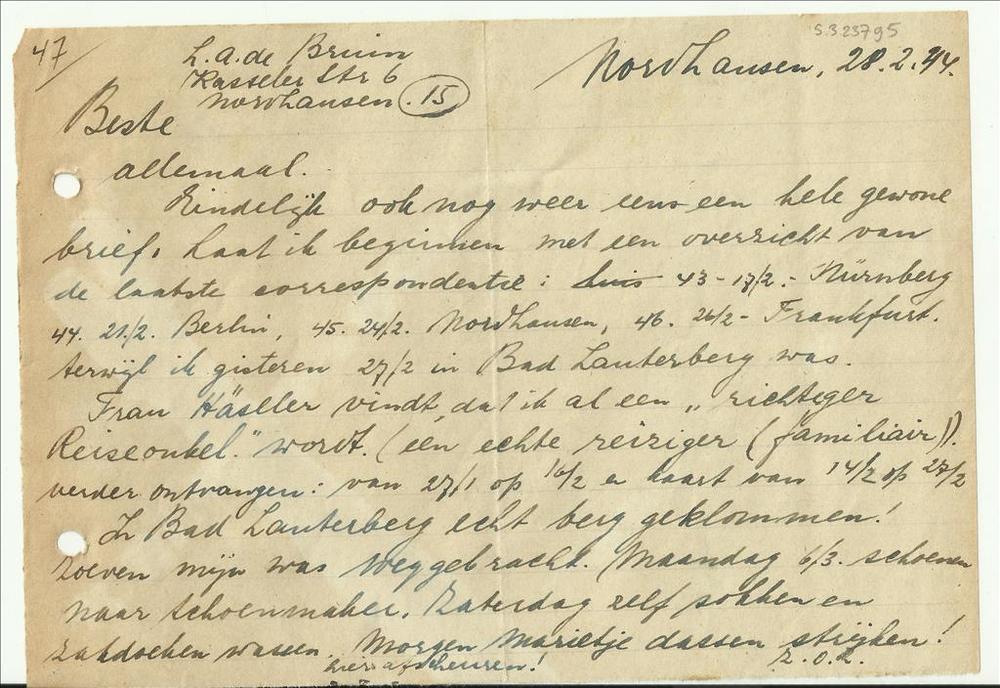 47/
S.323795
L.A. de Bruin
Kasseler Str 6
Nordhausen. 15
Nordhausen, 28.2.44.
Beste
allemaal.
Eindelijk ook nog weer eens een hele gewone
brief. Laat ik beginnen met een overzicht van
de laatste correspondentie: 43 - 17/2. - Nürnberg
44. 21/2. Berlin, 45. 24/2. Nordhausen, 46. 26/2 - Frankfurt.
terwijl ik gisteren 27/2 in Bad Lauterberg was.
Frau Häseller vindt, dat ik al een „richtiger
Reiseonkel." wordt. (één echte reiziger (familiair)).
verder ontvangen: van 27/1 op 16/2 en kaart van 14/2 op 27/2
In Bad Lauterberg echt berg geklommen!
Zoeven mijn was weggebracht. Maandag 6/3. schoenen
naar schoenmaker. Zaterdag zelf sokken en
zakdoeken wassen. Morgen Marietje dassen strijken!
hier afscheuren! Z.O.Z.